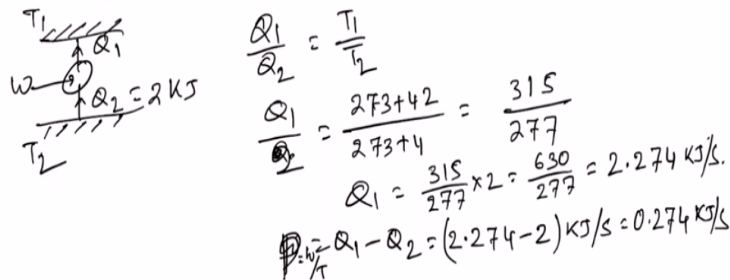 T₁
Q₁
W
Q₂ = 2KJ
T₂
Q₁/Q₂ = T₁/T₂
Q₁/Q₂ = 273+42/273+4 = 315/277
Q₁ = 315/277 × 2 = 630/277 = 2.274 KJ/S.
P = W/T = Q₁ - Q₂ = (2.274-2) KJ/S = 0.274 KJ/S